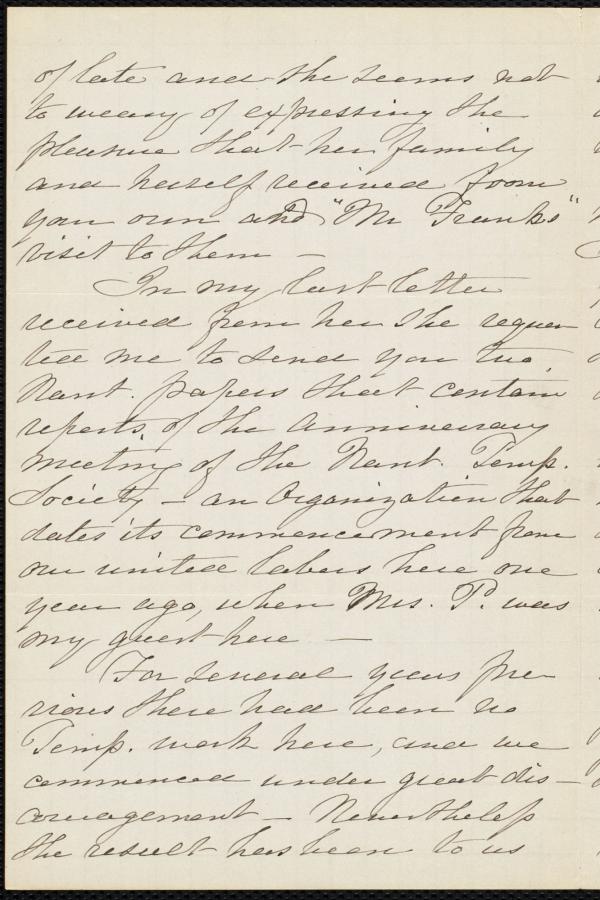 of late and she seems not
to weary of expressing the
pleasure that her family
and herself received from
your own and "Mr Frank's"
visit to them —
In my last letter
received from her she reques
ted me to send you two
Nant. papers that contain
reports of the Anniversary
meeting of the Nant. Temp.
Society — an Organization that
dates its commencement from
our united labors here one
year ago, when Mrs. P. was
my guest here —
For several years pre
vious there had been no
Temp. work here, and we
commenced under great dis—
couragement — Nevertheless
the result has been to us